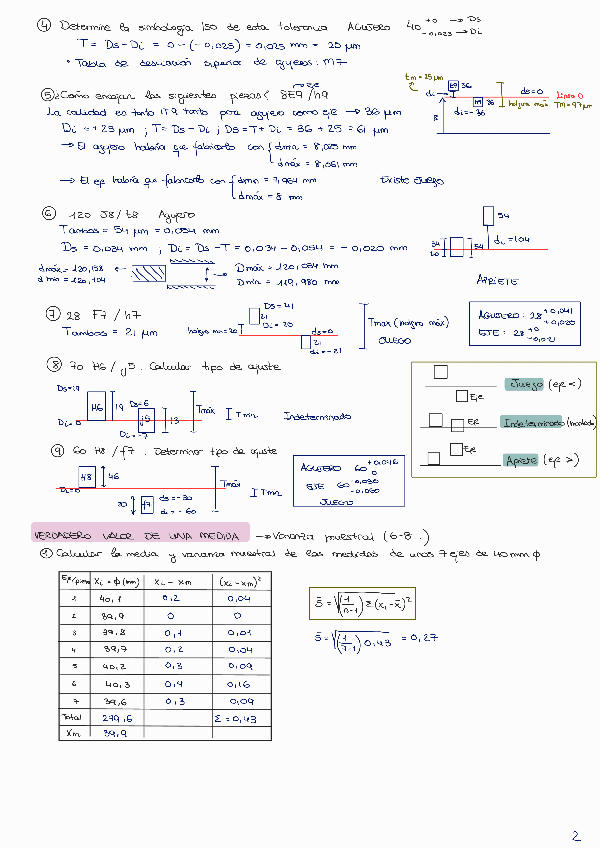 ④ Determine la simbología ISO de esta tolerancia AGUJERO 40 +0 → Ds
-0,025 → Di
T = Ds - Di = 0 - (-0,025) = 0,025 mm = 25 μm
• Tabla de desviación superior de agujeros: M7
⑤ ¿Cómo encajan las siguientes piezas? 8E9/h9
La calidad es tanto IT9 tanto para agujero como eje → 36 μm
Di = +25 μm ; T = Ds - Di ; Ds = T + Di = 36 + 25 = 61 μm
→ El agujero habría que fabricarlo con dmin = 8,025 mm
dmáx = 8,061 mm
→ El eje habría que fabricarlo con dmin = 7,964 mm
dmáx = 8 mm
Existe JUEGO
tm = 25 μm
36
ds=0
Línea 0
di
36
holgura máx
TM = 97 μm
8
di = -36
⑥ 120 J8/t8 Agujero
Tambos = 54 μm = 0,054 mm
Ds = 0,034 mm ; Di = Ds - T = 0,034 - 0,054 = -0,020 mm
dmáx = 120,158
dmin = 120,104
Dmáx = 120,034 mm
Dmin = 119,980 mm
54
di = 104
34
20
54
APRIETE
⑦ 28 F7/h7
Tambos = 21 μm
Ds = 41
21
Di = 20
holgura min = 20
ds=0
21
di = -21
Tmax (holgura máx)
JUEGO
AGUJERO: 28 +0,041
+0,020
EJE: 28 +0
-0,021
⑧ 70 H6/j5. Calcular tipo de ajuste
Ds=19
H6
19
Ds=6
j5
13
Di=0
Di = -7
Tmáx
Tmin
Indeterminado
Eje
Juego (eje <)
Eje
Indeterminado (montado)
Eje
Apriete (eje >)
⑨ 60 H8/f7. Determinar tipo de ajuste
H8
46
Di=0
20
f7
ds = -30
di = -60
Tmáx
Tmin
AGUJERO 60 +0,046
0
EJE 60 -0,030
-0,060
JUEGO
VERDADERO VALOR DE UNA MEDIDA → Varianza muestral (6-8..)
① Calcular la media y varianza muestral de las medidas de unos 7 ejes de 40mm ϕ
Eje/pieza Xi = ϕ (mm) Xi - Xm (Xi - Xm)²
1 40,1 0,2 0,04
2 39,9 0 0
3 39,8 0,1 0,01
4 39,7 0,2 0,04
5 40,2 0,3 0,09
6 40,3 0,4 0,16
7 39,6 0,3 0,09
Total 279,6 Σ = 0,43
Xm 39,9
S̄ = √(1/(n-1)) Σ(xi - x̄)²
S̄ = √(1/(7-1)) 0,43 = 0,27
2